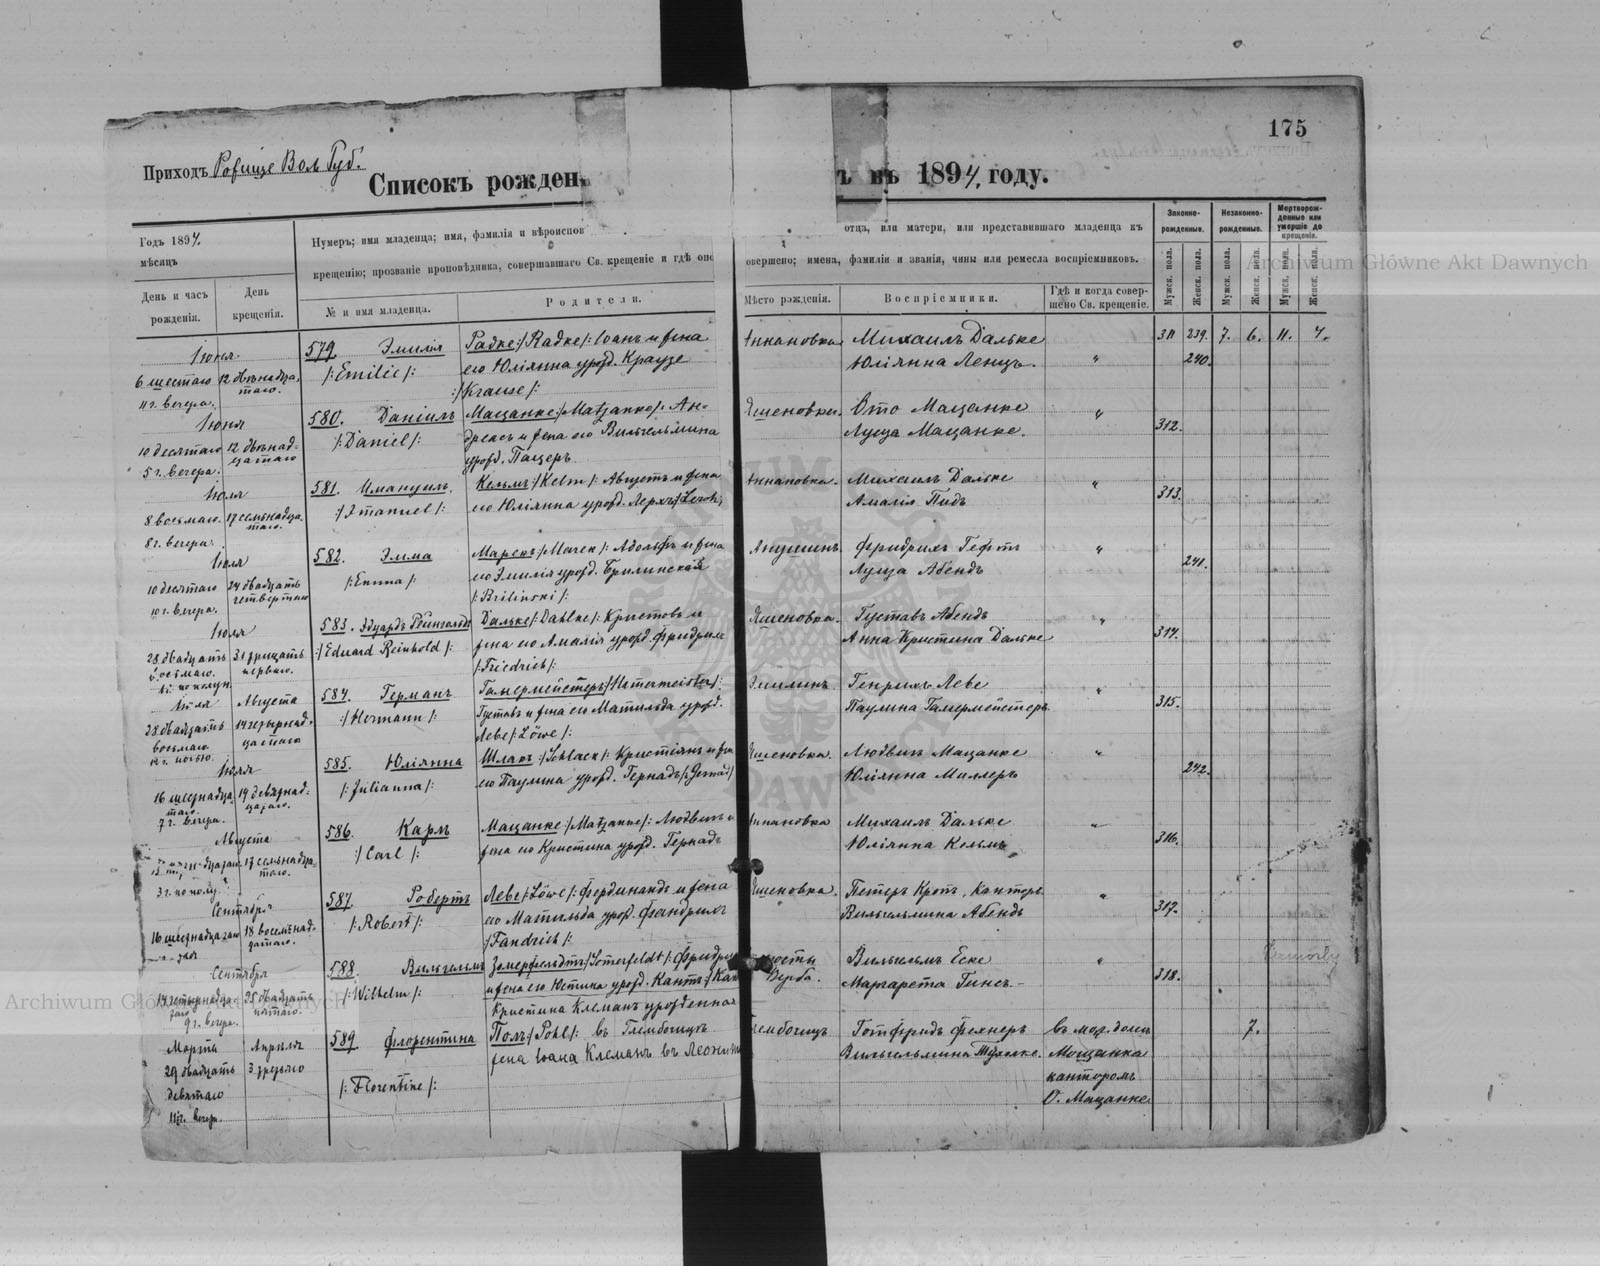 175
Приходъ Ровище Вол. Губ.
Списокъ рожден ъ въ 1894 году.
Годъ 1894.
мѣсяцъ
День и часъ рожденія.
День крещенія.
Нумеръ; имя младенца; имя, фамилія и вѣроиспов отца, или матери, или представившаго младенца къ
крещенію; прозваніе проповѣдника, совершавшаго Св. крещеніе и гдѣ оно овершено; имена, фамиліи и званія, чины или ремесла воспріемниковъ.
№ и имя младенца.
Родители.
Мѣсто рожденія.
Воспріемники.
Гдѣ и когда совершено Св. крещеніе.
Законнорожденные.
Незаконнорожденные.
Мертворожденные или умершіе до крещенія.
Мужск. пола.
Женск. пола.
Мужск. пола.
Женск. пола.
Мужск. пола.
Женск. пола.
Іюня
579 Эмилія Радке /: Radke :/ Іоанъ и жена Аннановка Михаилъ Дальке 311 239. 7. 6. 11. 7.
6 шестаго 12 двѣнадцатаго. /: Emilie :/ его Юліянна урожд. Краузе Юліянна Ленцъ. " 240.
11 г. вечера. /: Krause :/
Іюня
580. Даніилъ Мацанке /: Matzanke :/ Ан- Яшеновка. Ото Мацанке "
10 десятаго 12 двѣнад- /: Daniel :/ дреасъ и жена его Вильгельмина Луиза Мацанке. 312.
5 г. вечера. цатаго урожд. Пацеръ
Іюля
581. Имануилъ. Кельмъ /: Kelm :/ Августъ и жена Аннановка. Михаилъ Дальке "
8 восьмаго. 17 семьнадцатаго. /: Imanuel :/ его Юліянна урожд. Лерхъ /: Lerch :/ Амалія Пидъ 313.
8 г. вечера.
Іюля
582. Эмма Марекъ /: Marek :/ Адольфъ и жена Анушинъ. Фридрихъ Гефтъ "
10 десятаго 24 двадцать четвертаго /: Emma :/ его Эмилія урожд. Брилинская Луиза Абендъ 241.
10 г. вечера. /: Brilinski :/
Іюля
583. Эдуардъ Рейнгольдъ Дальке /: Dahlke :/ Кристовъ и Яшеновка. Густавъ Абендъ "
28 двадцать восьмаго. 31 трицать перваго. /: Eduard Reinhold :/ жена его Амалія урожд. Фридрихъ Анна Кристина Дальке 314.
/: Friedrich :/
Іюля Августа
584. Германъ Гамермейстеръ /: Hamermeister :/ Эмилинъ. Генрихъ Леве "
28 двадцать восьмаго 14 четырнадцатаго /: Hermann :/ Густавъ и жена его Матильда урожд. Паулина Гамермейстеръ 315.
12 г. ночью. Леве /: Löwe :/
Іюля
585. Юліянна Шлакъ /: Schlack :/ Кристіянъ и жена Яшеновка. Людвигъ Мацанке "
16 шестнадцатаго 19 девятнадцатаго. /: Julianna :/ его Паулина урожд. Гернадъ /: Gernad :/ Юліянна Миллеръ 242.
7 г. вечера.
Августа
586. Карлъ Мацанке /: Matzanke :/ Людвигъ и Аннановка Михаилъ Дальке "
17 семьнадцатаго. /: Carl :/ жена его Кристина урожд. Гернадъ Юліянна Кельмъ 316.
3 г. по полу.
Сентября
587. Робертъ Леве /: Löwe :/ Фердинандъ и жена Яшеновка. Петеръ Кротъ, Канторъ "
16 шестнадцатаго 18 восемьнадцатаго. /: Robert :/ его Матильда урожд. Фандрихъ Вильгельмина Абендъ 317.
/: Fandrich :/
Сентября
588. Вильгельмъ Зомерфельдтъ /: Somerfeldt :/ Фридрихъ Верба. Вильгельмъ Еске "
14 четырнадцатаго 25 двадцать пятаго. /: Wilhelm :/ и жена его Юстина урожд. Кантъ Маргарета Гинсъ 318.
9 г. вечера.
Кристина Клеманъ урожденная
Марта Апреля
589 Флорентина Полъ /: Pohl :/ въ Глембочицъ Глембочицъ Готфридъ Фехнеръ въ мол. доми 7.
29 двадцать 3 третьяго жена Іоана Клеманъ въ Вильгельмина Мацанка
девятаго /: Florentine :/ канторомъ
11 г. вечера О. Мацанке
Archiwum Główne Akt Dawnych
Archiwum Główne Akt Dawnych